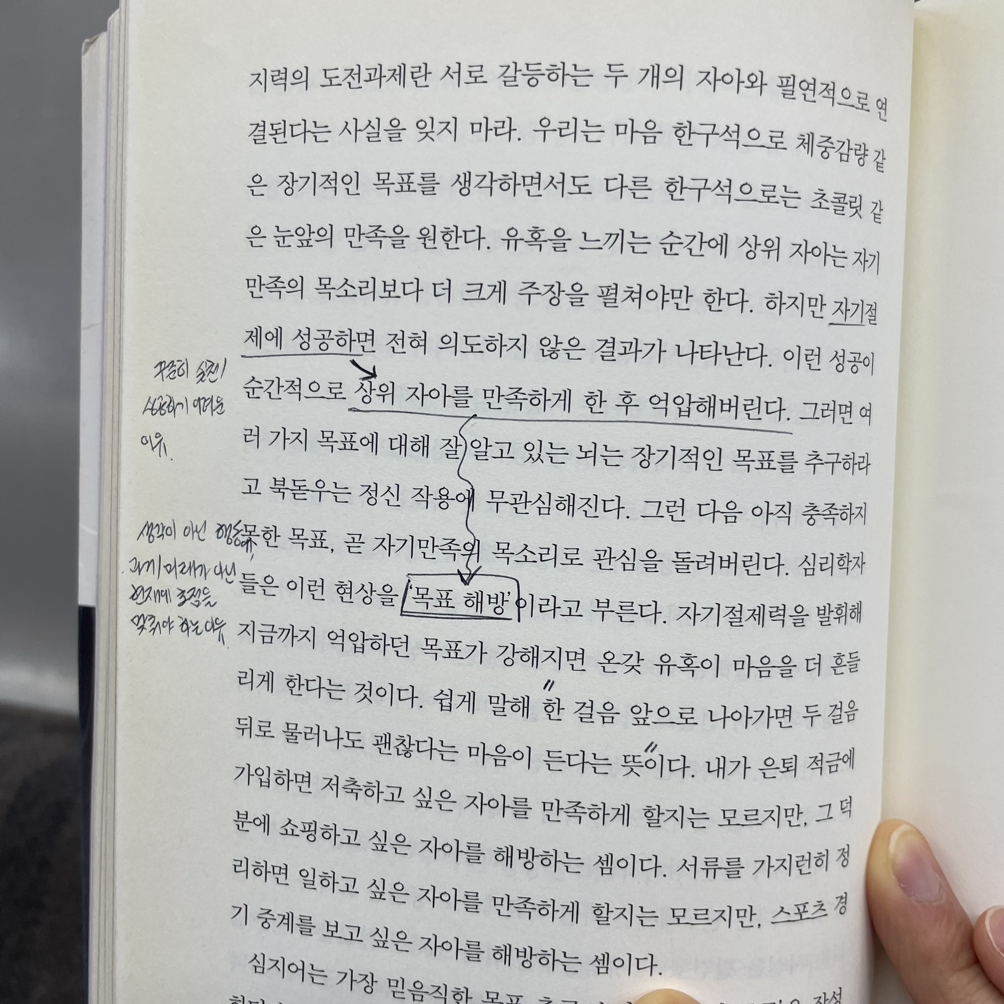 지력의 도전과제란 서로 갈등하는 두 개의 자아와 필연적으로 연
결된다는 사실을 잊지 마라. 우리는 마음 한구석으로 체중감량 같
은 장기적인 목표를 생각하면서도 다른 한구석으로는 초콜릿 같
은 눈앞의 만족을 원한다. 유혹을 느끼는 순간에 상위 자아는 자기
만족의 목소리보다 더 크게 주장을 펼쳐야만 한다. 하지만 자기절
제에 성공하면 전혀 의도하지 않은 결과가 나타난다. 이런 성공이
순간적으로 상위 자아를 만족하게 한 후 억압해버린다. 그러면 여
러 가지 목표에 대해 잘 알고 있는 뇌는 장기적인 목표를 추구하라
고 북돋우는 정신 작용에 무관심해진다. 그런 다음 아직 충족하지
못한 목표, 곧 자기만족의 목소리로 관심을 돌려버린다. 심리학자
들은 이런 현상을 '목표 해방'이라고 부른다. 자기절제력을 발휘해
지금까지 억압하던 목표가 강해지면 온갖 유혹이 마음을 더 흔들
리게 한다는 것이다. 쉽게 말해 한 걸음 앞으로 나아가면 두 걸음
뒤로 물러나도 괜찮다는 마음이 든다는 뜻이다. 내가 은퇴 적금에
가입하면 저축하고 싶은 자아를 만족하게 할지는 모르지만, 그 덕
분에 쇼핑하고 싶은 자아를 해방하는 셈이다. 서류를 가지런히 정
리하면 일하고 싶은 자아를 만족하게 할지는 모르지만, 스포츠 경
기 중계를 보고 싶은 자아를 해방하는 셈이다.
심지어는 가장 믿음직한 목표
꾸준히 실천/
성공하기 어려운
이유.
생각이 아닌 행동에
과거/미래가 아닌
현재에 초점을
맞춰야 하는 이유.